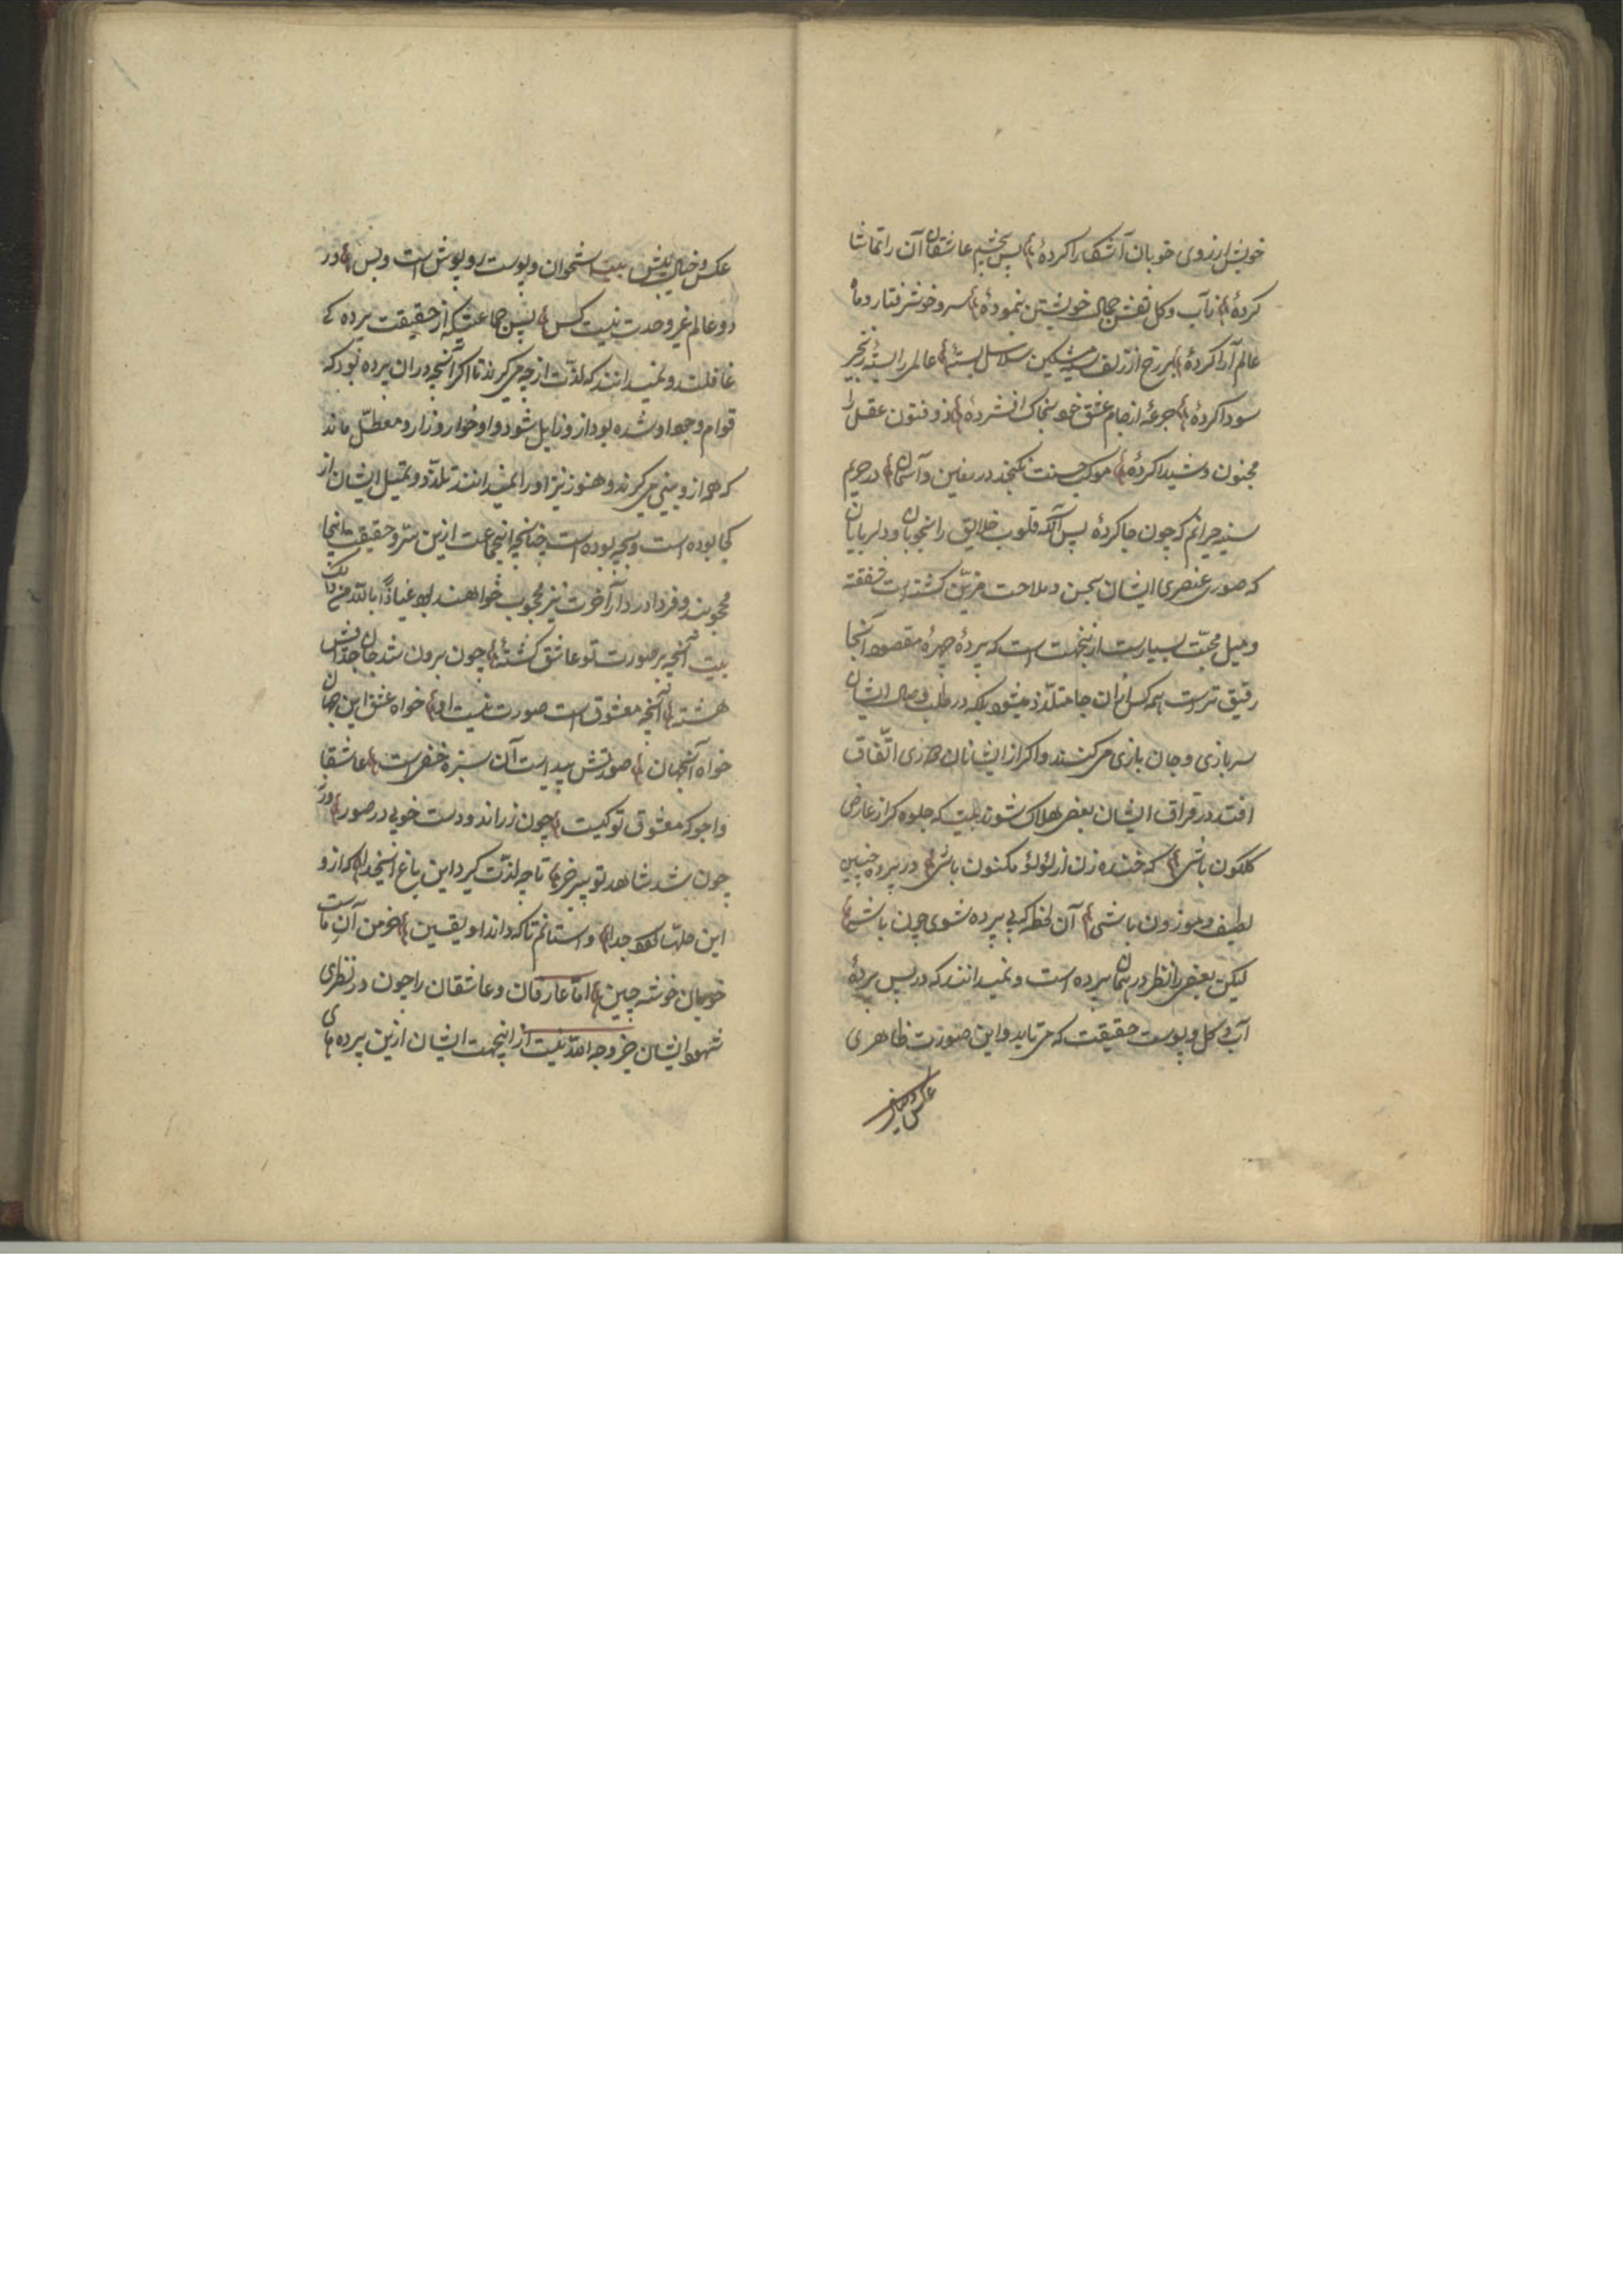 خویش از روی خوبان آشکارا کردهٔ پس بچشم عاشقان آن را تماشا
کردهٔ زآب و کل نقش جمال خویشتن بنمودهٔ سرو خوشرفتار و ماه
عالم آرا کردهٔ بر رخ از زلف سیه مشکین سلاسل بستهٔ عالمی را بستهٔ زنجیر
سودا کردهٔ جرعهٔ از جام عشق خود بخاک افشردهٔ ذوفنون عقل را
مجنون و شیدا کردهٔ موکب حسنت نکنجد در زمین و آسمان در حریم
سینه حیرانم که چون جا کردهٔ پس آنکه قلوب خلایق را بخوبان و دلربایان
که صوری عنصری ایشان بحسن و ملاحت مزیّن کشته است
و میل محبّت بسیارست ازینجهت است که پردهٔ چهرهٔ مقصود آنجا
رقیق ترست همه کس از ان جا متلذّذ میشود بلکه در طلب وصال ایشان
سربازی و جان بازی می کنند و اکر از ایشانان دوری اتّفاق
افتد در فراق ایشان بعضی هلاک شوند بیت که جلوه کر از عارض
کلکون باشی که خنده زن از لؤلؤ مکنون باشی در پرده چنین
لطیف و موزون باشی آن لحظه که بی پرده شوی چون باشی
لیکن بعضی را نظر در همان پرده است و نمیدانند که در پس پردهٔ
آب و کل و پوست حقیقت که می تابد و این صورت ظاهری
عکس و خیال
عکس و خیال بیش بیت استخوان و پوست روپوش است و بس در
دو عالم غیر وحدت نیست کس پس جماعتیکه از حقیقت پرده کی
غافلند و نمیدانند که لذّت از چه می کیرند تا اکر آنچه در ان پرده بود که
قوام وجود او شده بود از و زایل شود و او خوار و زار و معطّل ماند
که هم از و بینی می کیرند و هنوز نیز او را نمیدانند تلذّذ و تمثیل ایشان از
کجا بوده است و بچه بوده است چنانچه اینجماعت ازین سرّ و حقیقت اینجا
محجوبند و فردا در دار آخرت نیز محجوب خواهند بود عیاذًا بالله من ذلک
بیت آنچه بر صورت تو عاشق کشتهٔ چون برون شد جان چراش
هشتهٔ آنچه معشوق است صورت نیست او خواه عشق این جهان
خواه آنجهان صورتش پیداست آن سبزه خضر است عاشقا
واجو که معشوق تو کیست چون زراندودست خوبی در صور ورنه
چون شد شاهد تو پیر خر تا چه لذّت کیرد این باغ ای خدا که از و
این حلّتها کردد جدا واستانم تا که داند او یقین خرمن آنِ ماست
خوبان خوشه چین امّا عارفان و عاشقان را چون در نظری
شهود ایشان جز وجه الله نیست از اینجهت ایشان ازین پرده های